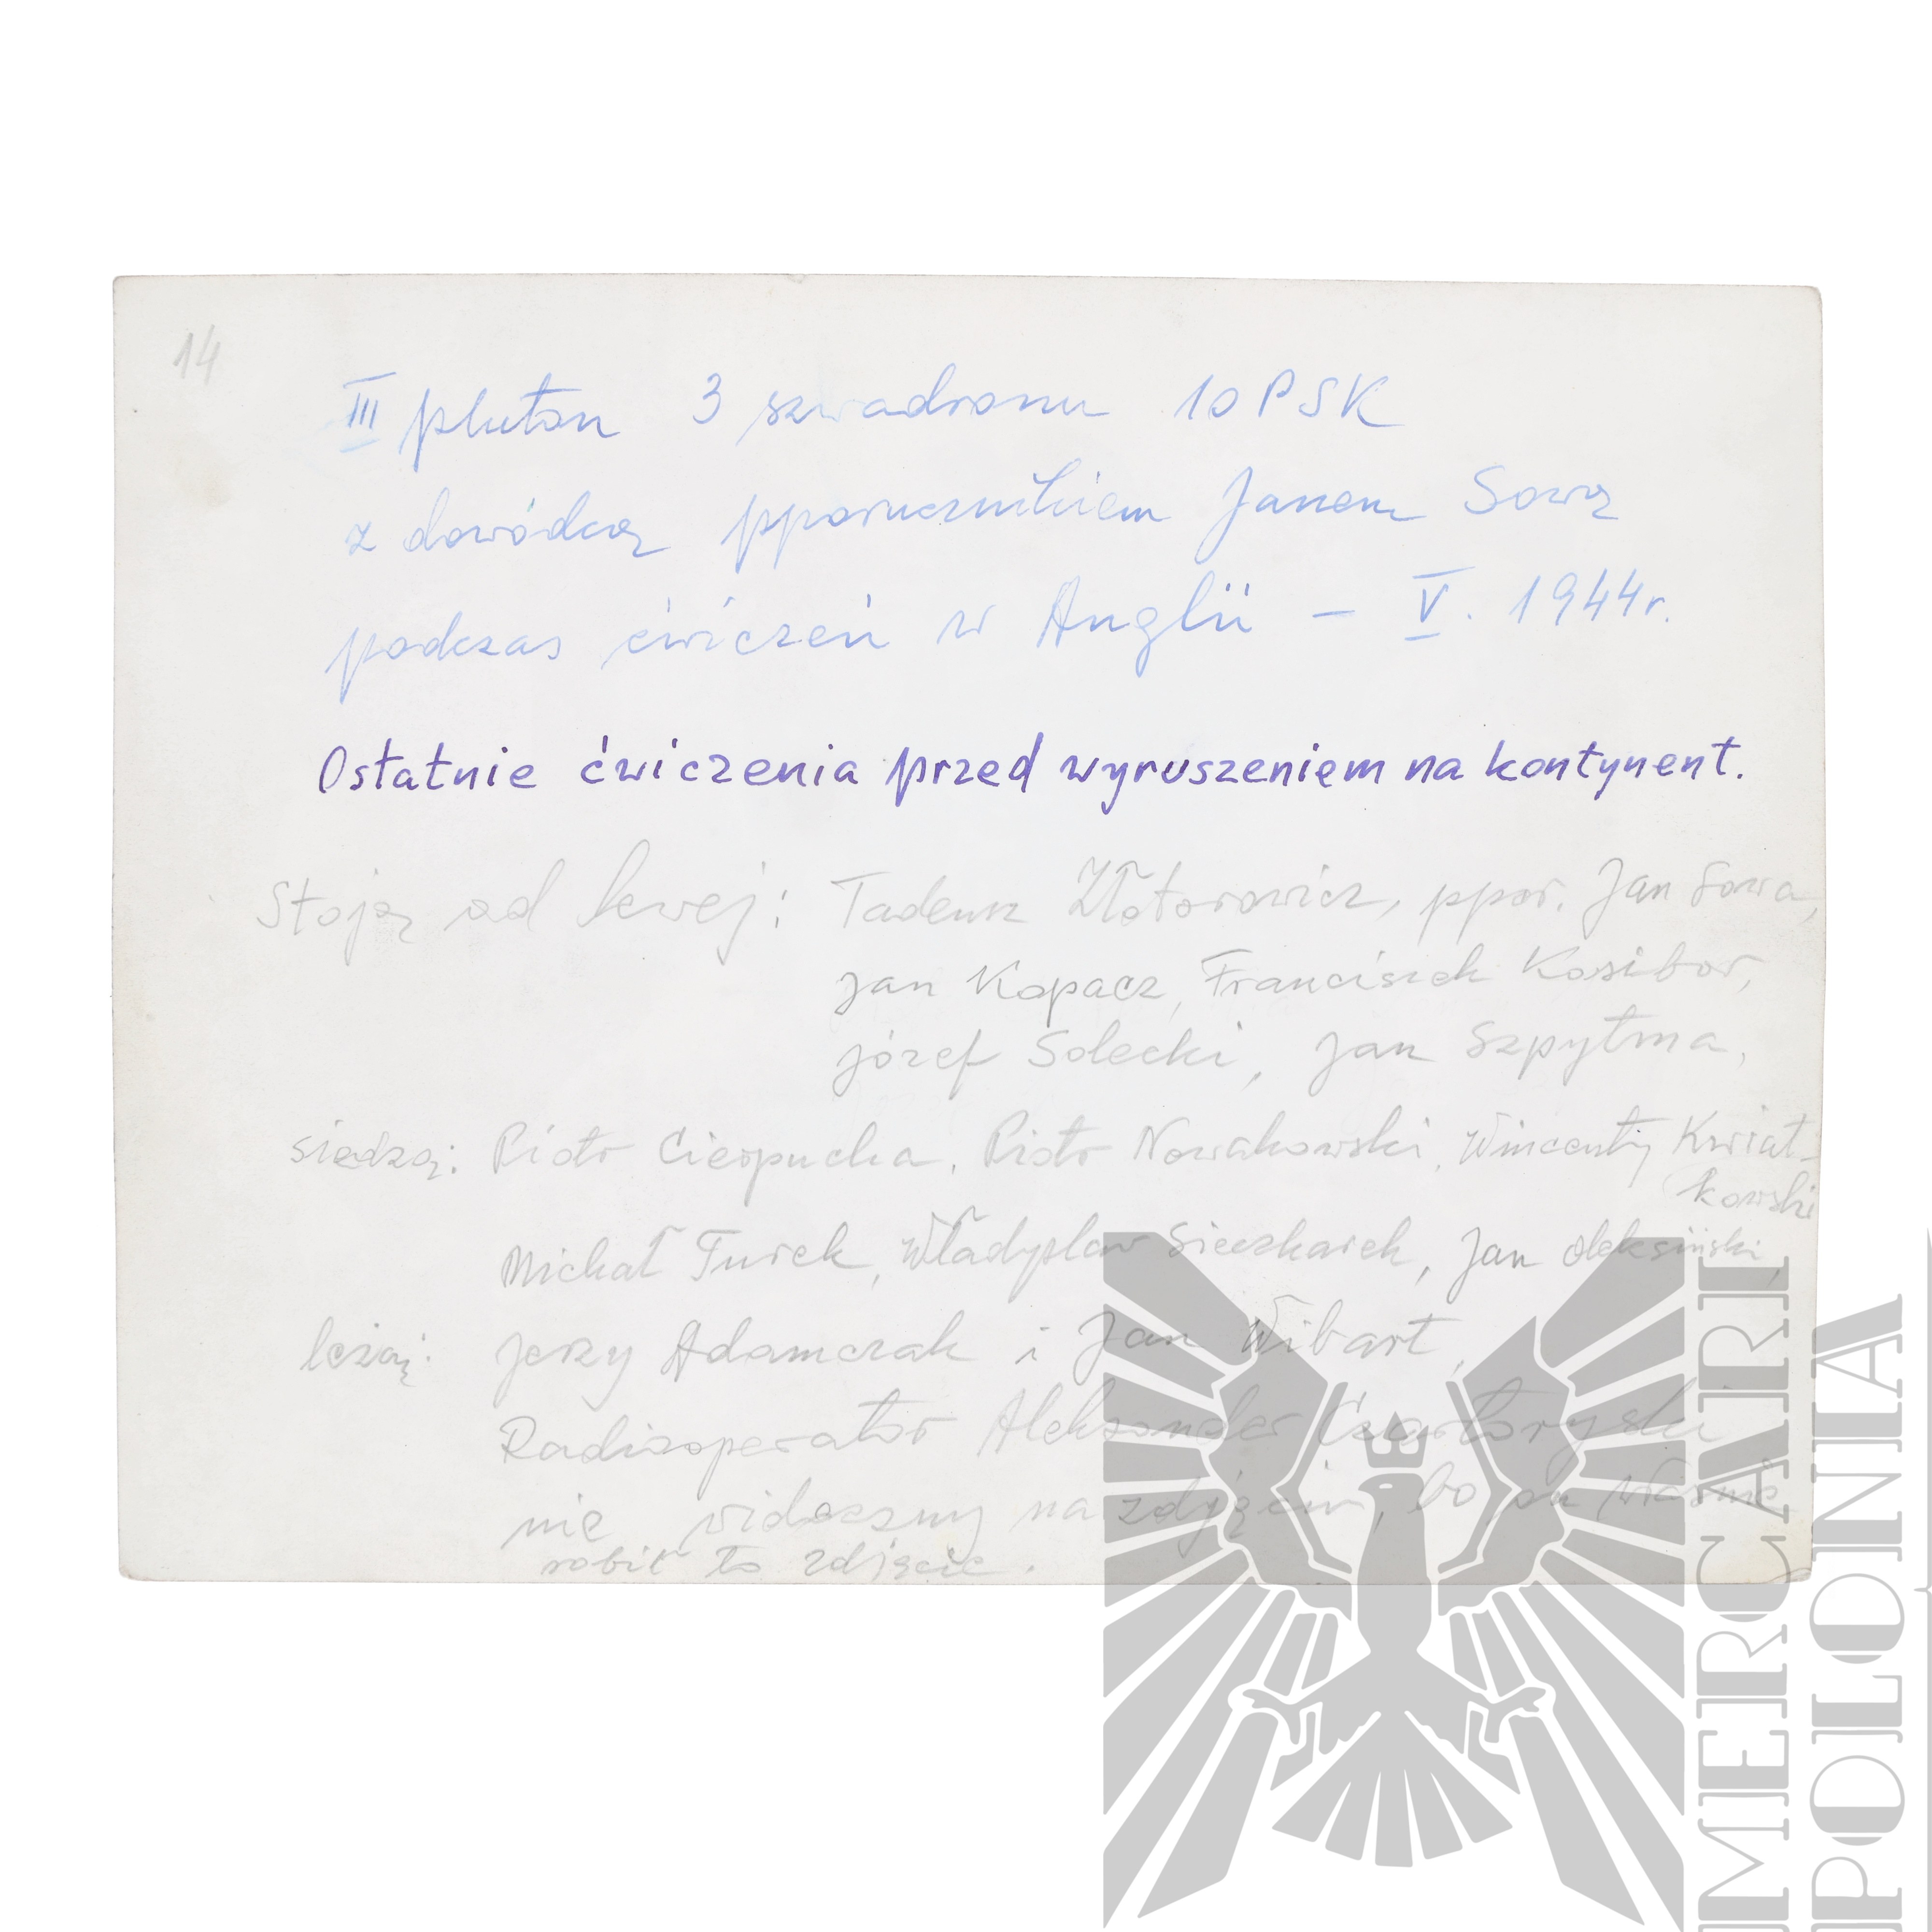 14
III pluton 3 szwadronu 10 PSK
z dowódcą pporucznikiem Janem Sową
podczas ćwiczeń w Anglii – V. 1944r.
Ostatnie ćwiczenia przed wyruszeniem na kontynent.
Stoją od lewej: Tadeusz Złotorowicz, ppor. Jan Sowa,
Jan Kopacz, Franciszek Kosibor,
Józef Solecki, Jan Szpytma,
siedzą: Piotr Cierpucha, Piotr Nowakowski, Wincenty Kwiat-
kowski
Michał Turek, Władysław Jan Oleksiński,
leżą: Jerzy Adamczak i Jan Wibart,
Radiooperator Aleksander Czartoryski
nie widoczny na zdjęciu, bo on właśnie
robił to zdjęcie.
MERCARII
POLONIA